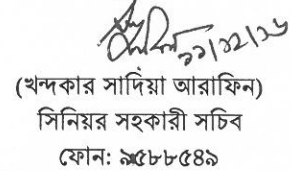 ১১/১২/১৬
(খন্দকার সাদিয়া আরাফিন)
সিনিয়র সহকারী সচিব
ফোন: ৯৫৮৮৫৪৯